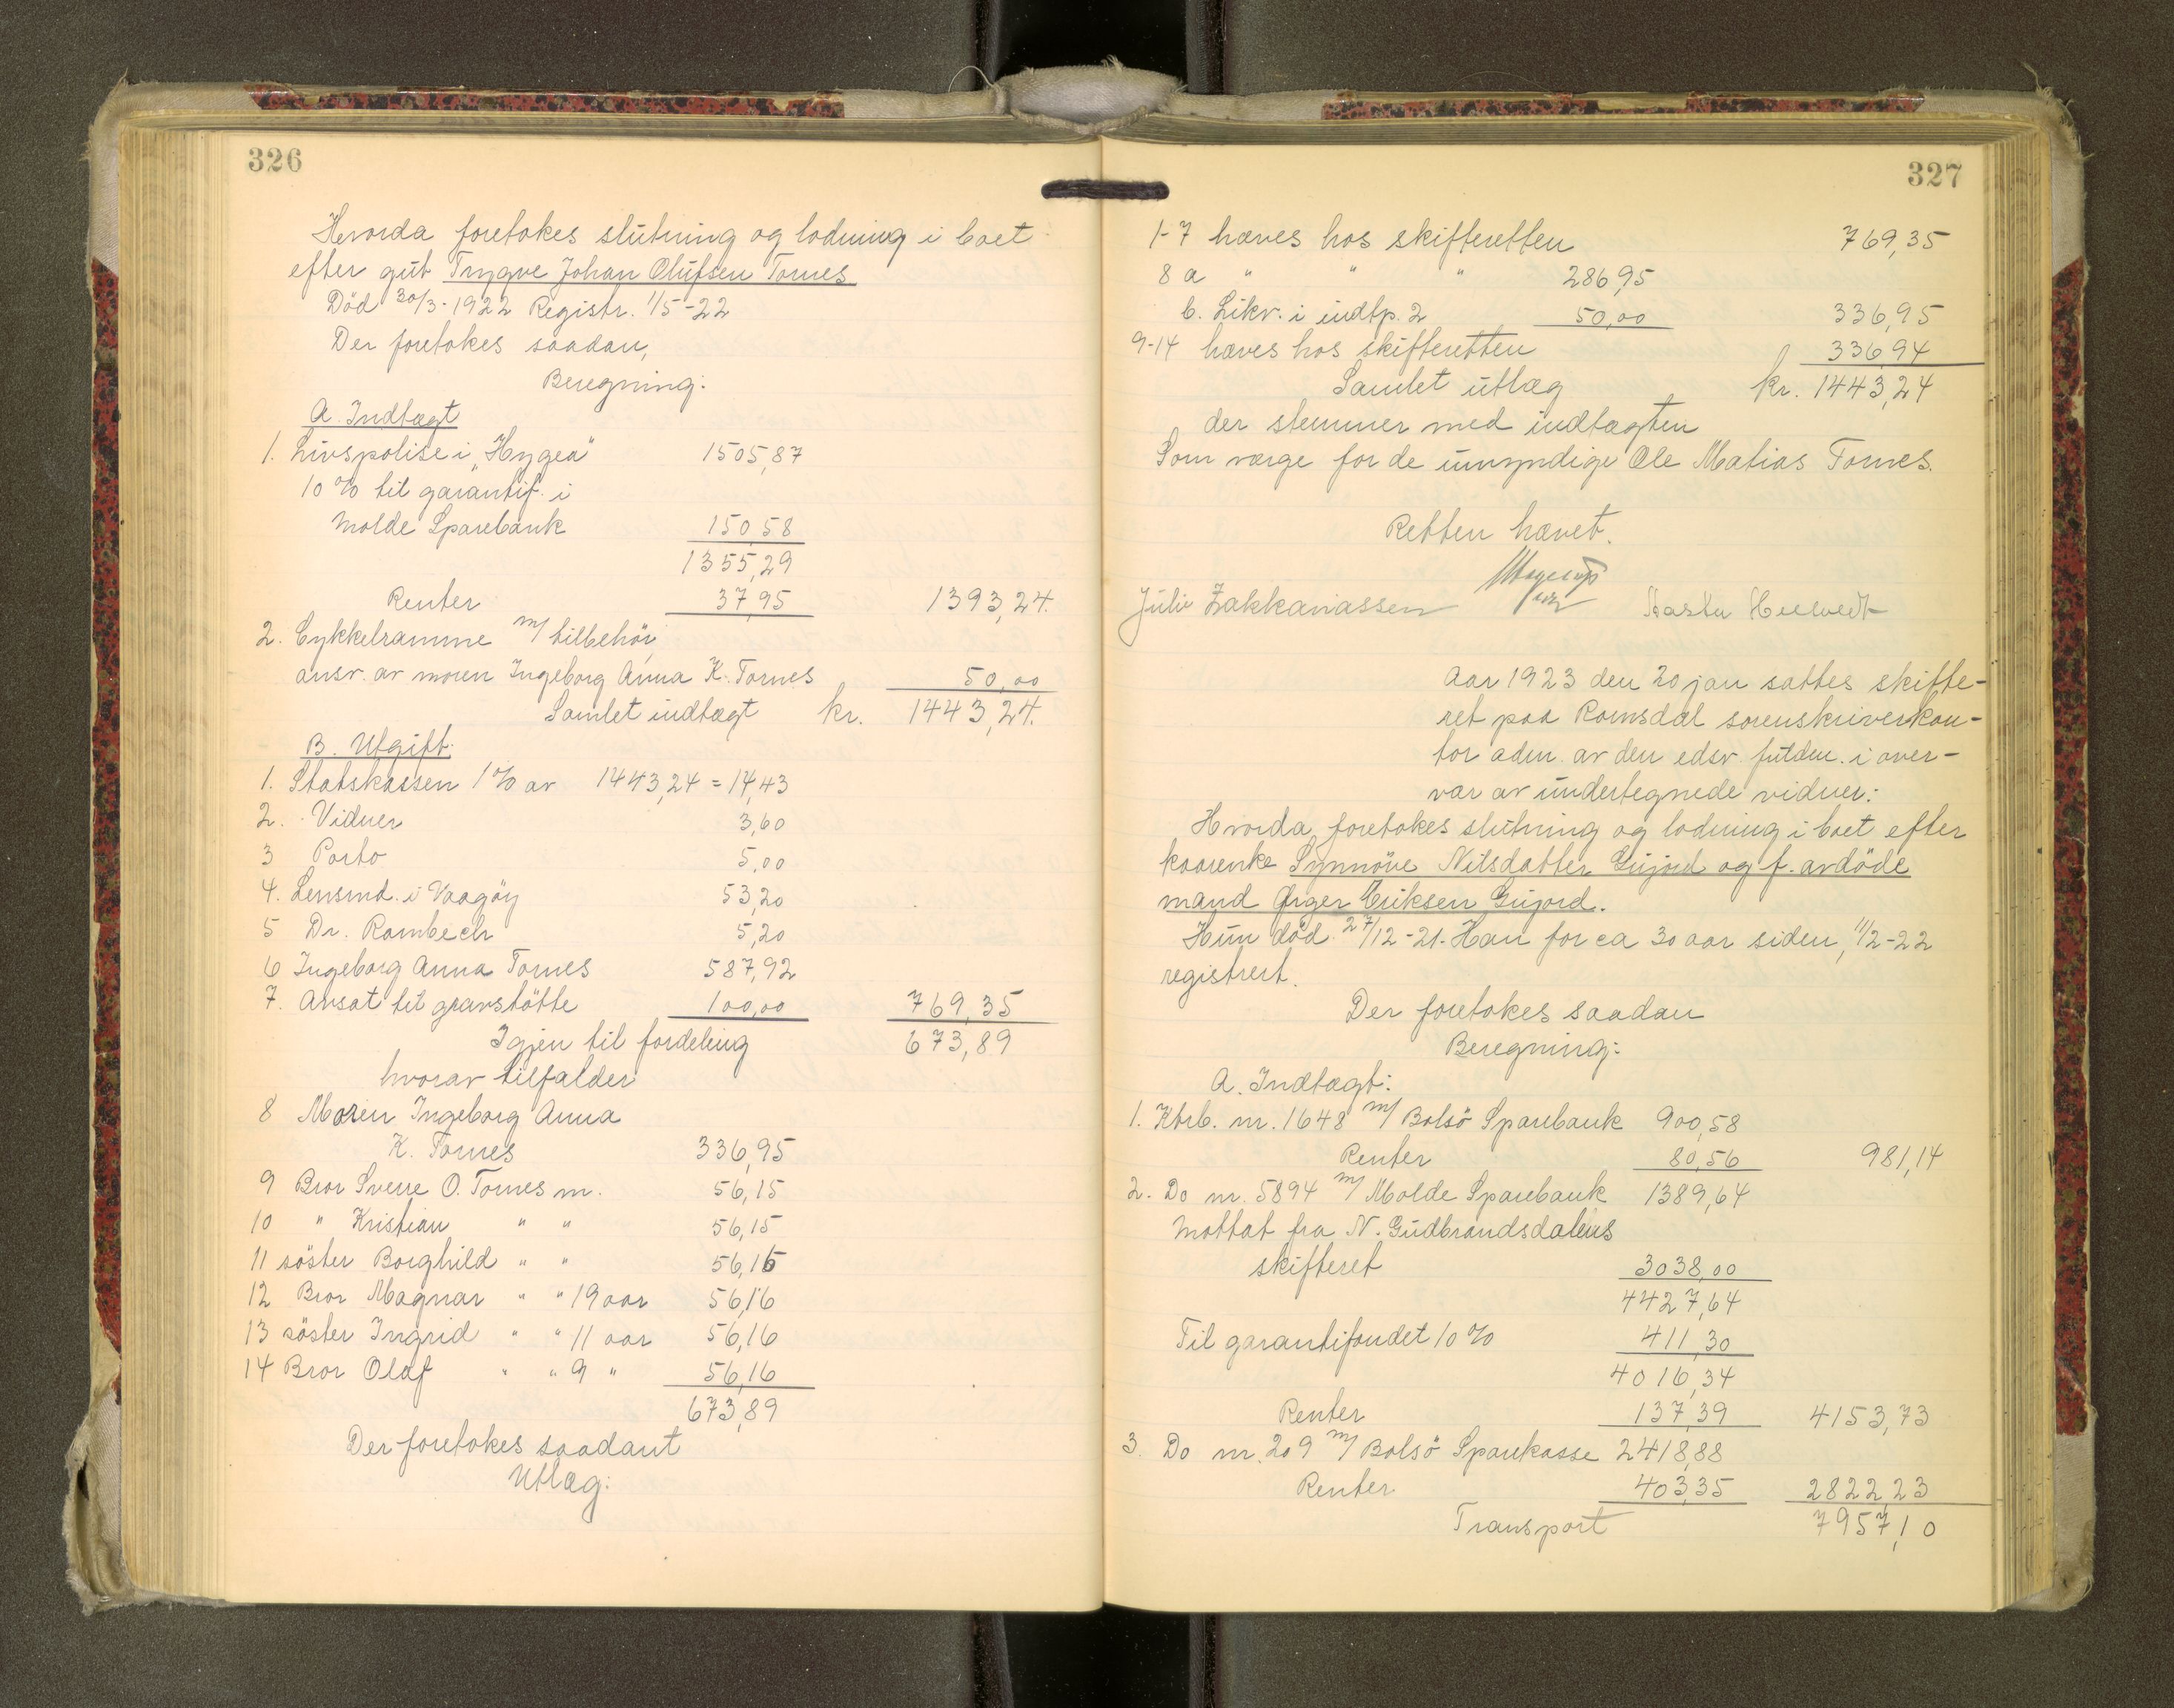 326
Hvorda foretokes slutning og lodning i boet
efter gut Trygve Johan Olufsen Tornes
Död 30/3-1922 Registr. 1/5-22
Der foretokes saadan,
Beregning:
A. Indtægt
1. Livspolise i „Hygea" 1505,87
10 % til garantif. i
Molde Sparebank 150,58
1355,29
Renter 37,95 1393,24.
2. Cykkelramme m/ tilbehör,
ansv. av moren Ingeborg Anna K. Tornes 50,00
Samlet indtægt kr. 1443,24.
B. Utgift.
1. Statskassen 1% av 1443,24 = 14,43
2. Vidner 3,60
3 Porto 5,00
4. Lensmd. i Vaagöy 53,20
5 Dr. Rambech 5,20
6 Ingeborg Anna Tornes 587,92
7. Avsat til gravstötte 100,00 769,35
Igjen til fordeling 673,89
hvorav tilfalder
8 Moren Ingeborg Anna
K. Tornes 336,95
9 Bror Sverre O. Tornes m. 56,15
10 " Kristian " " 56,15
11 söster Borghild " " 56,16
12 Bror Magnar " " 19 aar 56,16
13 söster Ingrid " " 11 aar 56,16
14 Bror Olaf " " 9 " 56,16
673,89
Der foretokes saadant
Utlæg:
327
1-7 hæves hos skifteretten 769,35
8 a " " " 286,95
b. Likv. i indtp. 2 50,00 336,95
9-14 hæves hos skifteretten 336,94
Samlet utlæg kr. 1443,24
der stemmer med indtægten
Som verge for de umyndige Ole Matias Tornes.
Retten hævet.
Juliv Zakkariassen
Aar 1923 den 20 jan sattes skifte-
ret paa Romsdal sorenskriverkon-
tor adm. av den edsv. fuldm. i over-
vær av undertegnede vidner:
Hvorda foretokes slutning og lodning i boet efter
kaarenke Synnöve Nilsdatter Gujord og f. avdöde
mand Ørger Eriksen Gujord.
Hun död 27/12-21. Han for ca 30 aar siden, 11/2-22
registrert.
Der foretokes saadan
Beregning:
A. Indtægt:
1. Ktrb. nr. 1648 m/ Bolsö Sparebank 900,58
Renter 80,56 981,14
2. Do nr. 5894 m/ Molde Sparebank 1389,64
Mottat fra N. Gudbrandsdalens
skifteret 3038,00
4427,64
Til garantifondet 10 % 411,30
4016,34
Renter 137,39 4153,73
3. Do nr. 209 m/ Bolsö Sparekasse 2418,88
Renter 403,35 2822,23
Transport 7957,10